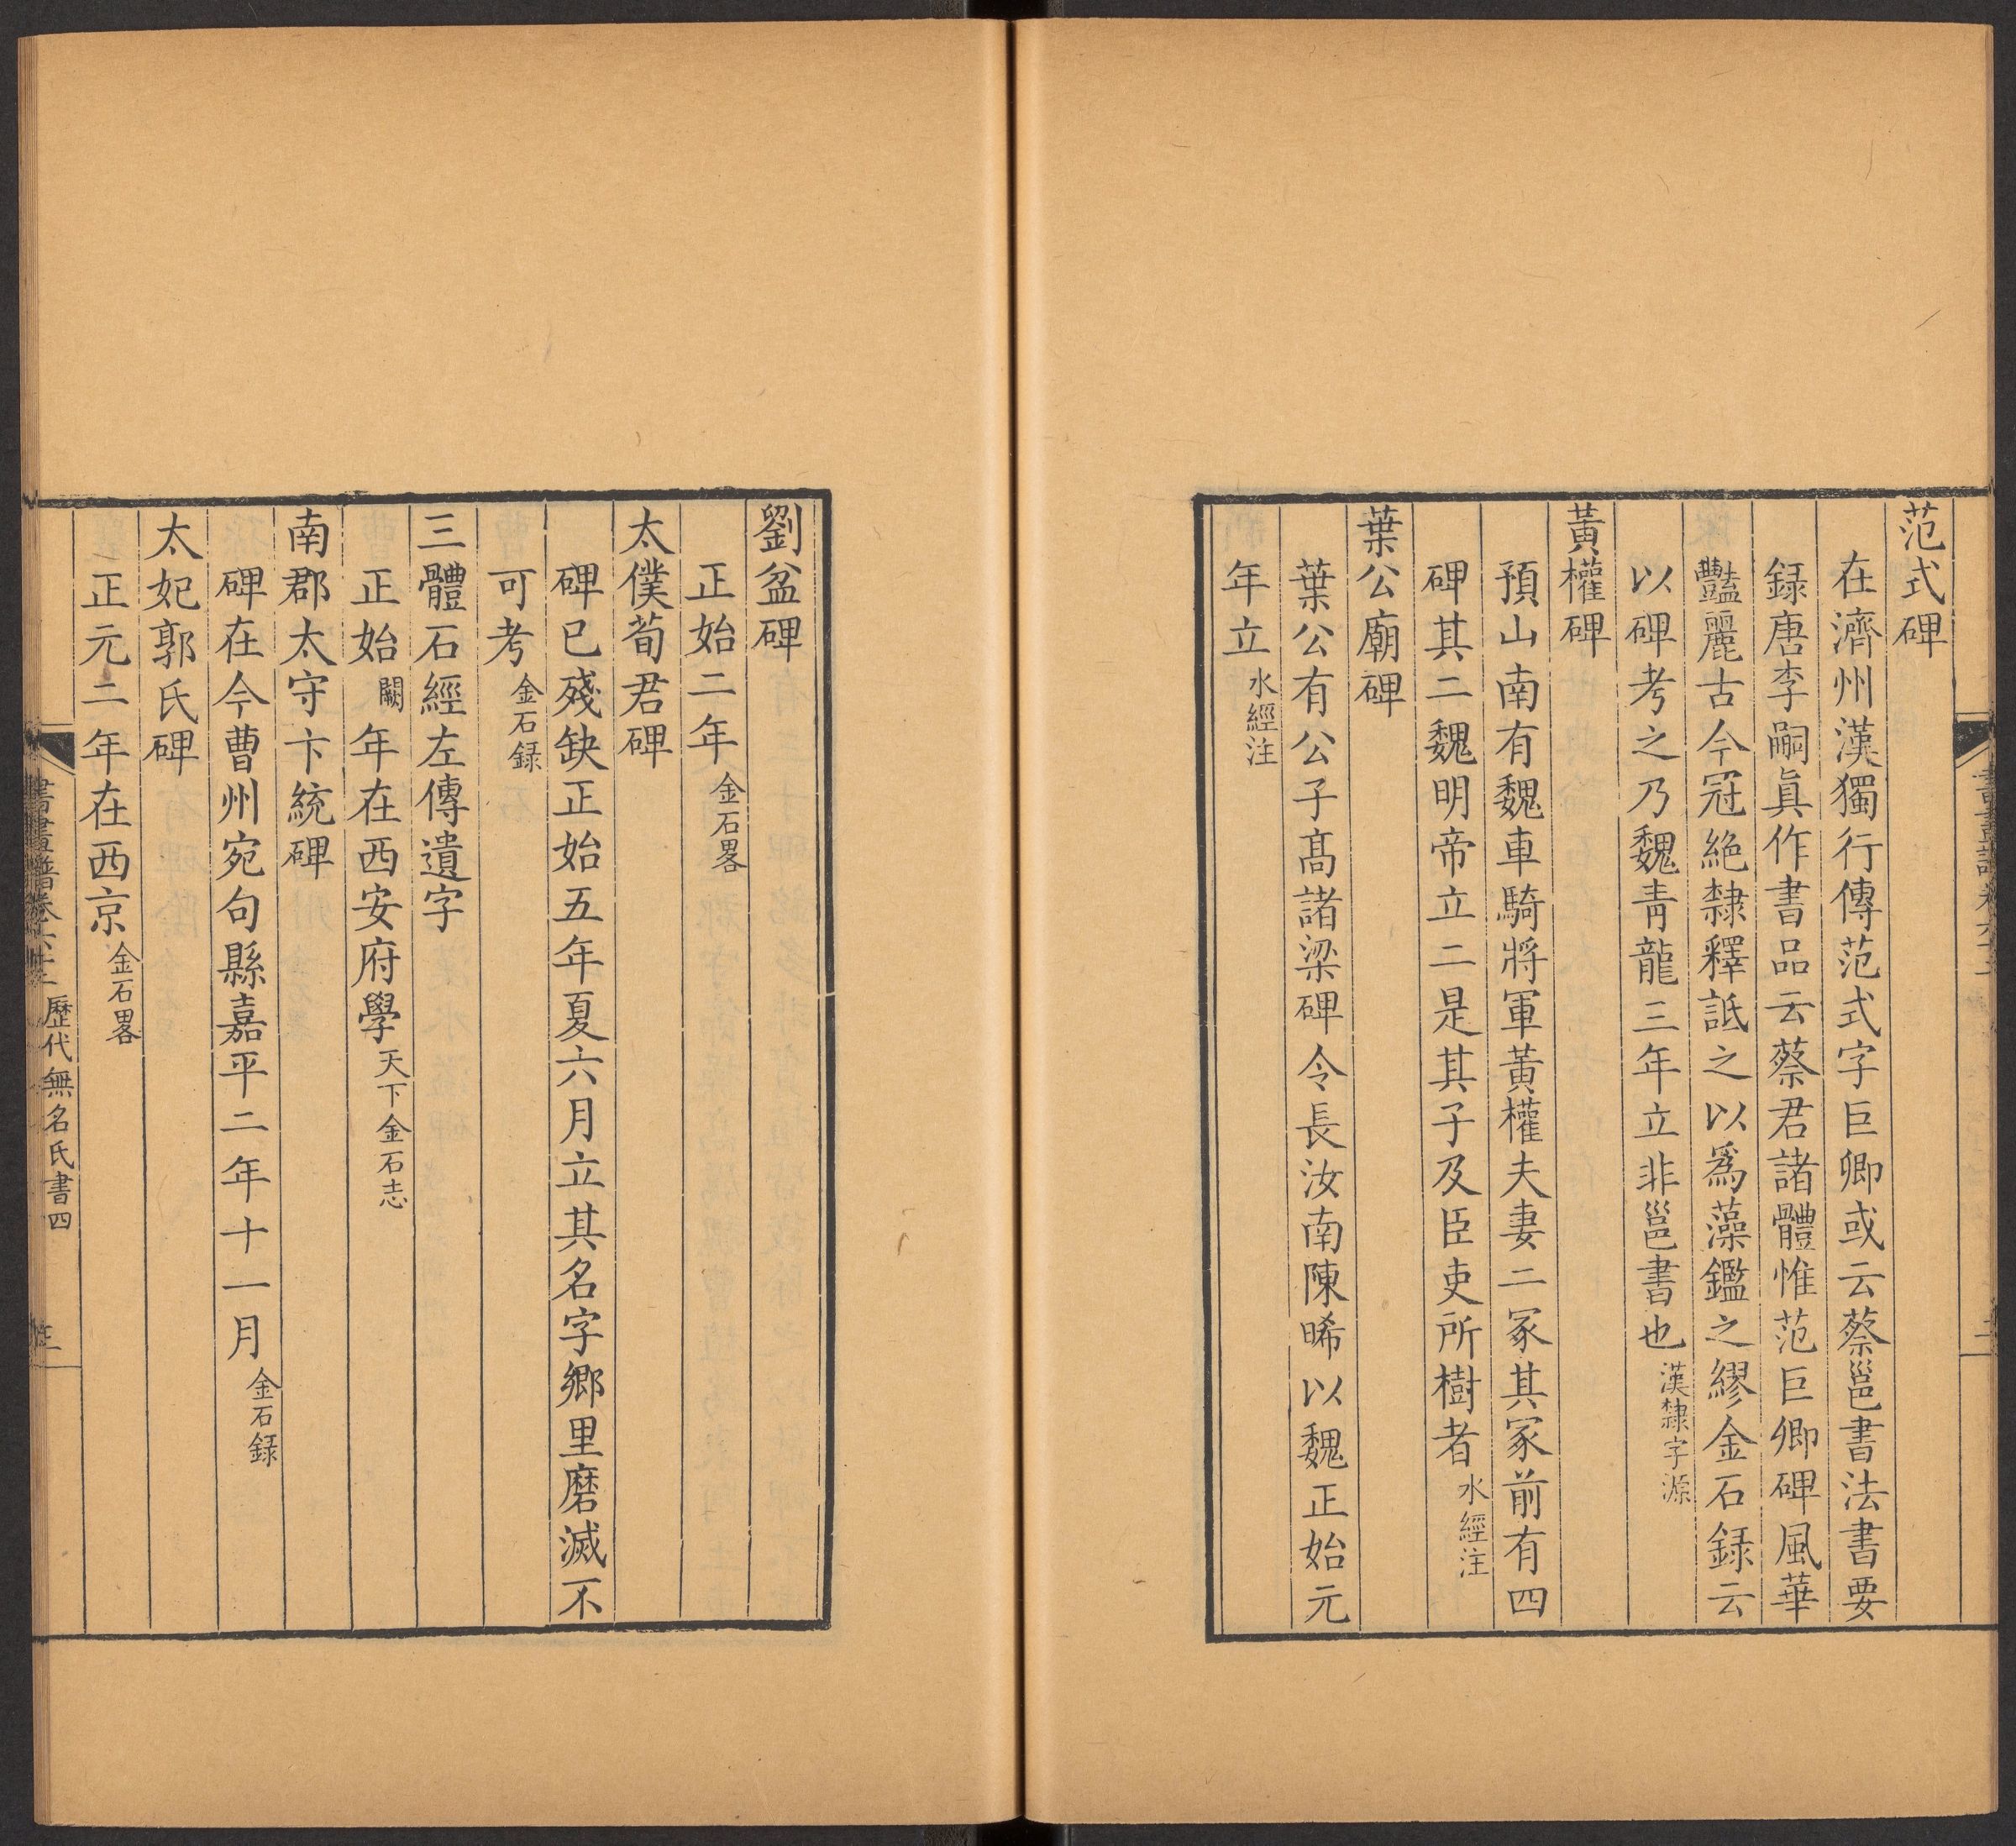 范式碑
在濟州漢獨行傳范式字巨卿或云蔡邕書法書要
録唐李嗣眞作書品云蔡君諸體惟范巨卿碑風華
豔麗古今冠絶隸釋詆之以爲藻鑑之繆金石録云
以碑考之乃魏青龍三年立非邕書也漢隸字源
黃權碑
預山南有魏車騎將軍黃權夫妻二冢其冢前有四
碑其二魏明帝立二是其子及臣吏所樹者水經注
葉公廟碑
葉公有公子高諸梁碑令長汝南陳晞以魏正始元
年立水經注
劉盆碑
正始二年金石畧
太僕荀君碑
碑已殘缺正始五年夏六月立其名字鄉里磨滅不
可考金石録
三體石經左傳遺字
正始闕年在西安府學天下金石志
南郡太守卞統碑
碑在今曹州宛句縣嘉平二年十一月金石録
太妃郭氏碑
正元二年在西京金石畧
書畫譜卷六十 歷代無名氏書四